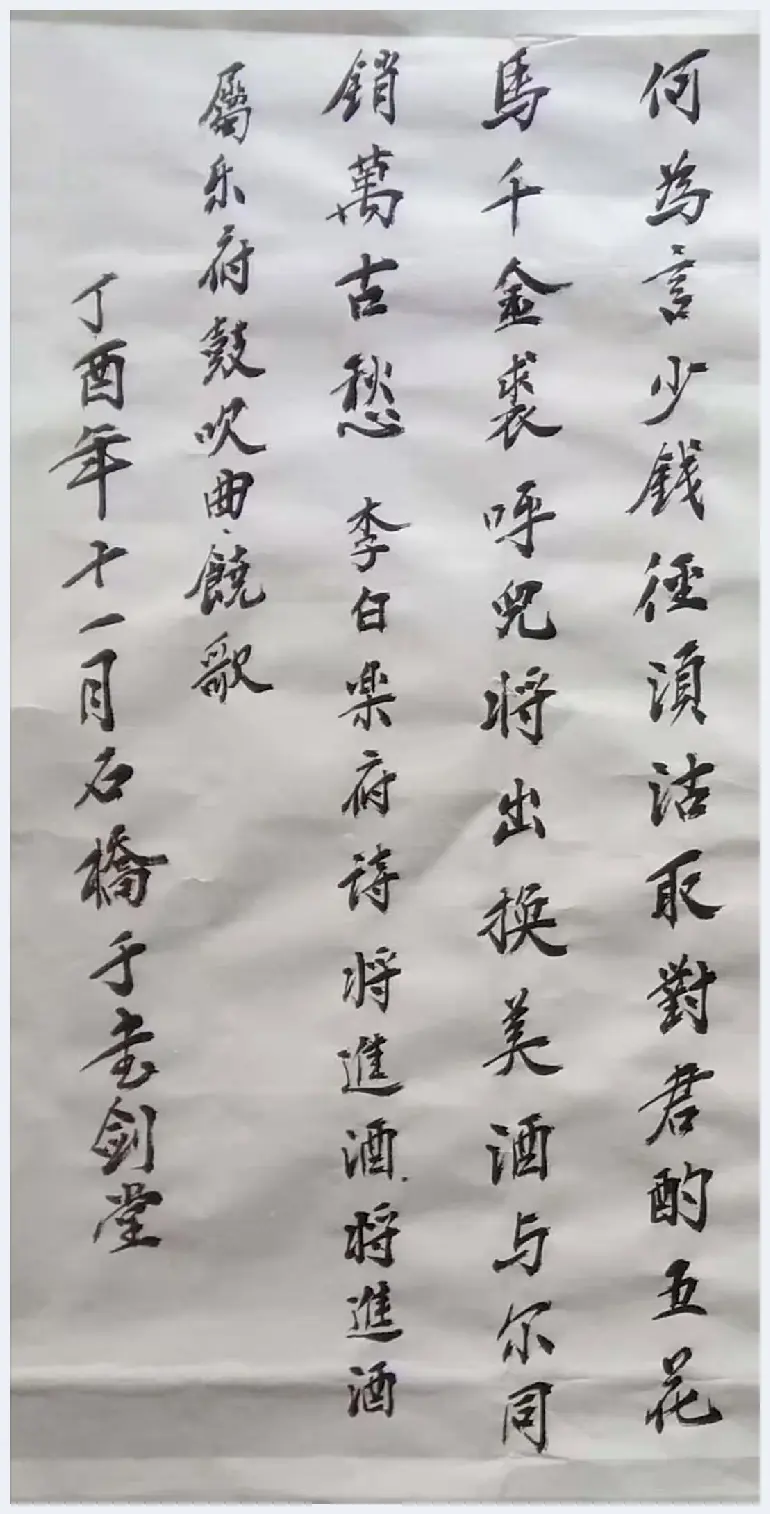 何為言少錢徑湏沽取對君酌五花
馬千金裘呼兒将出換美酒与尔同
銷萬古愁 李白楽府詩将進酒.将進酒
屬乐府鼓吹曲·饒歌
丁酉年十一月石橋于书劍堂